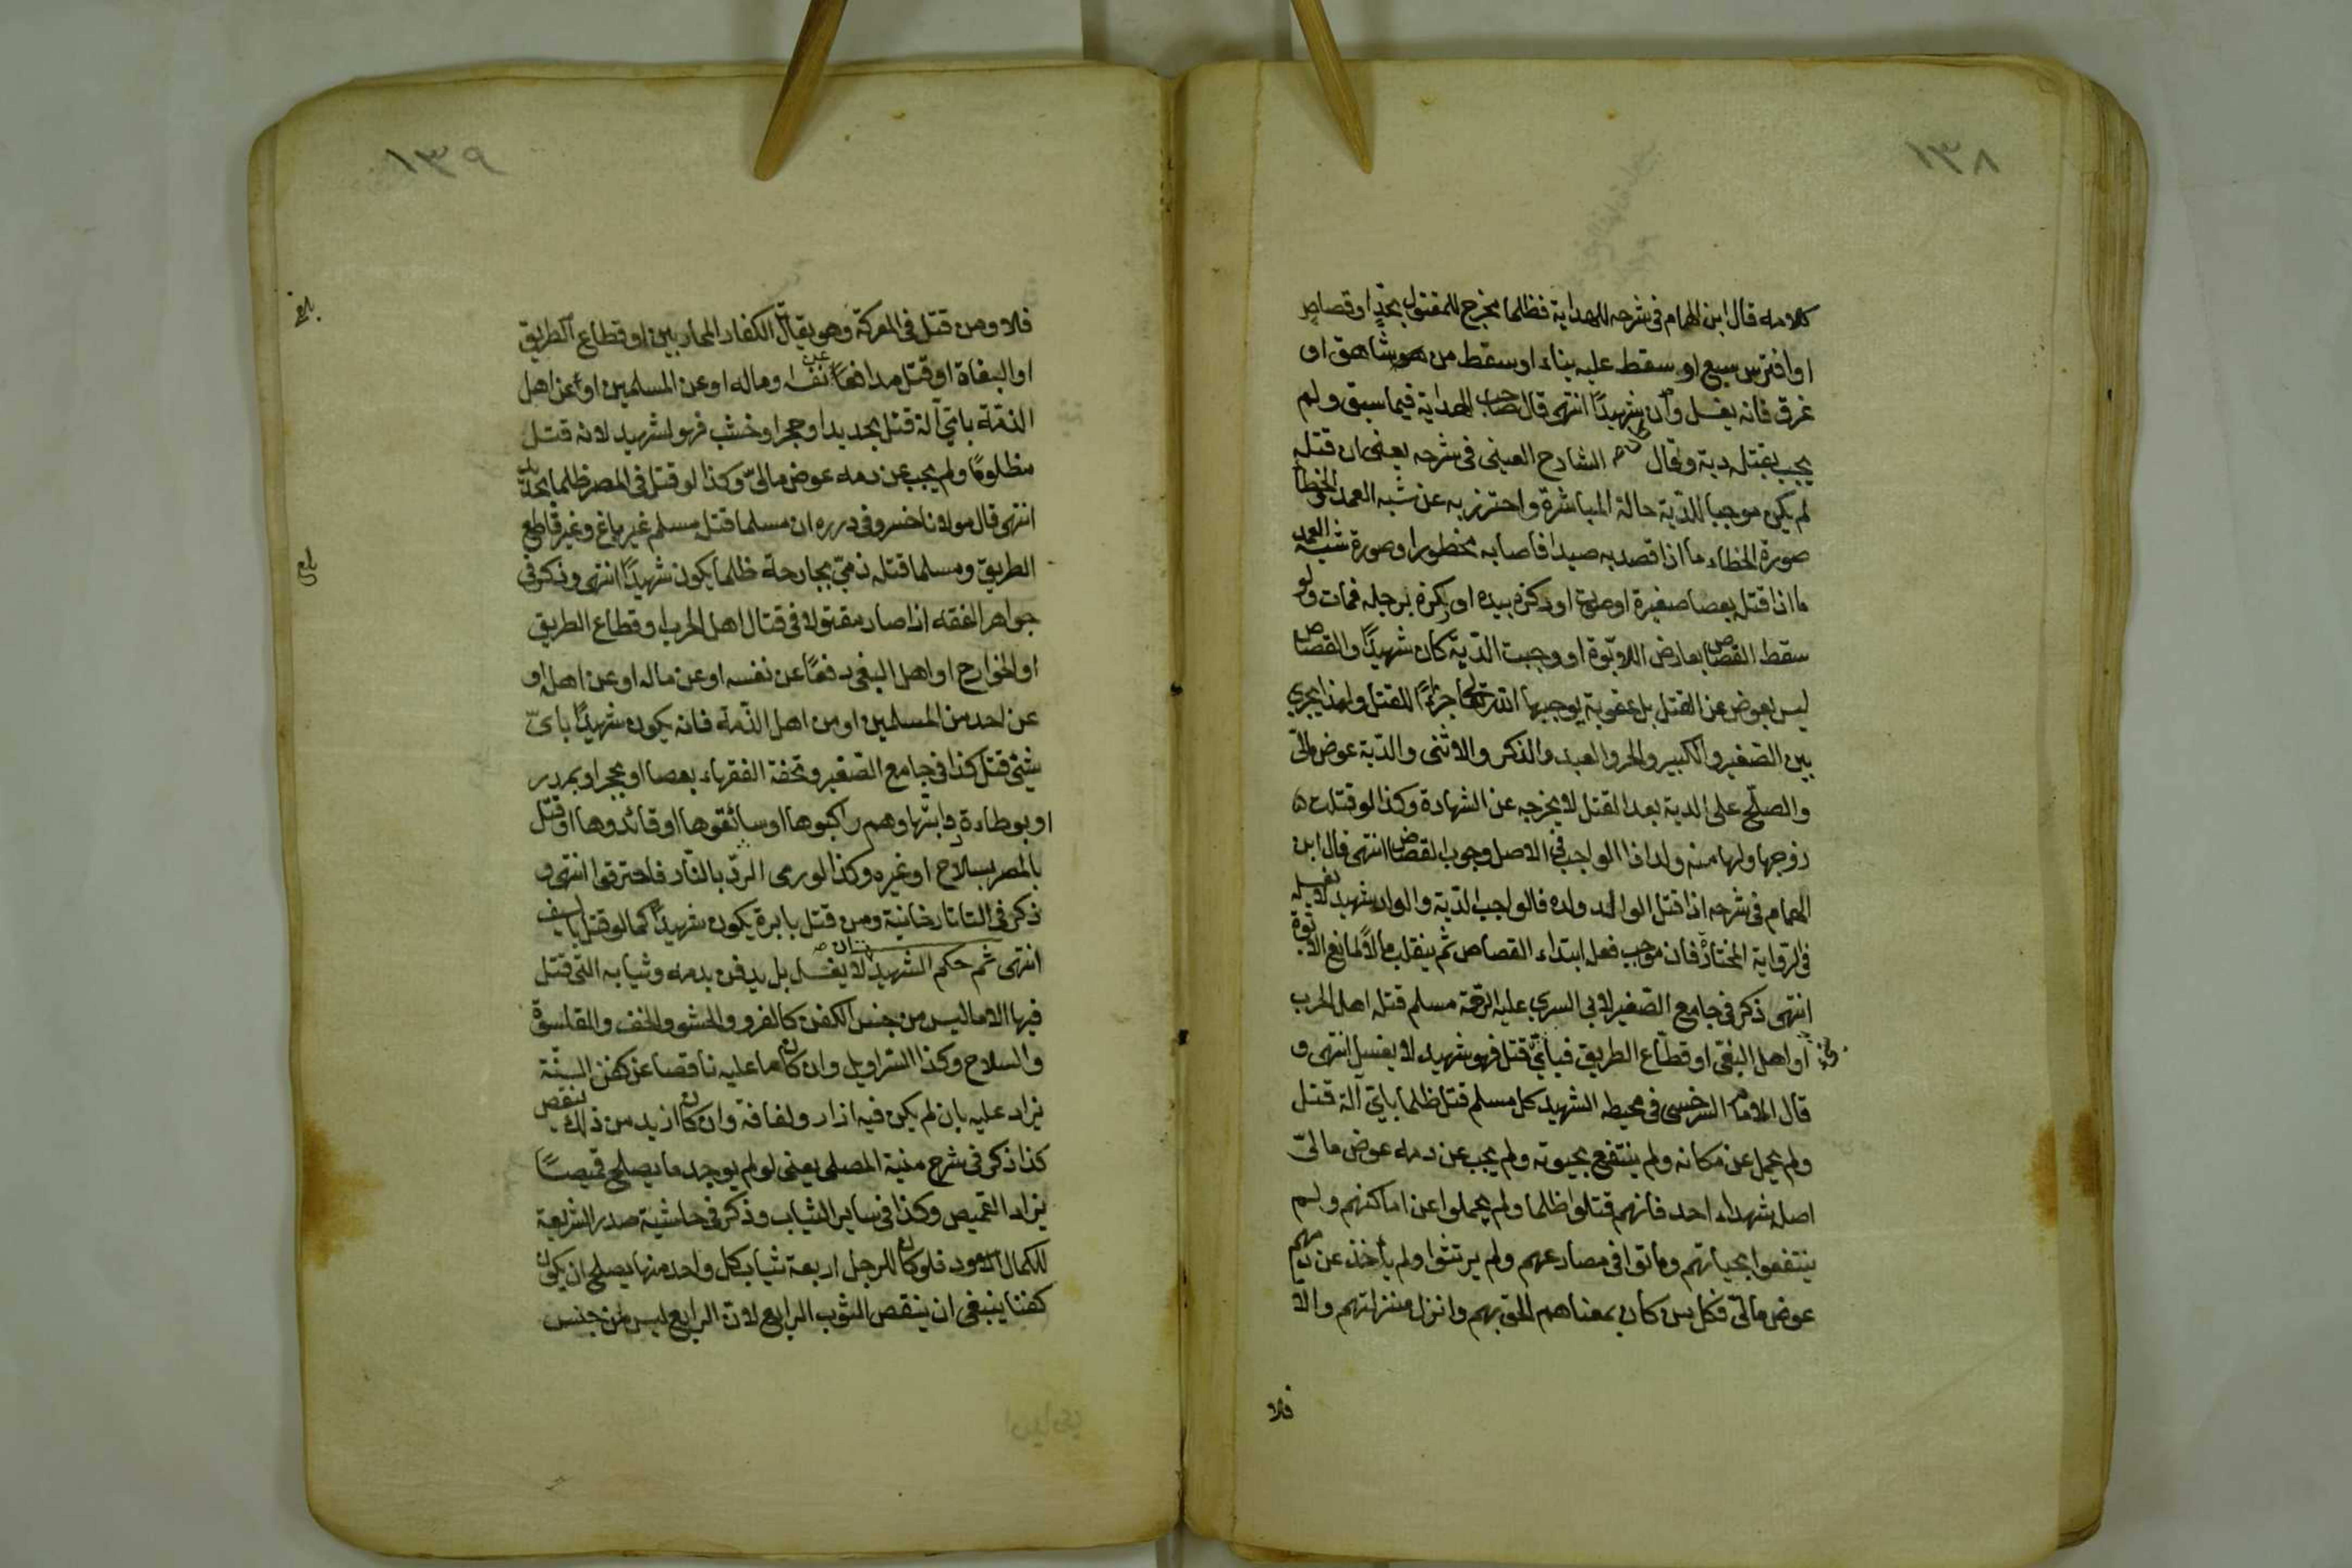 ١٣٨
كلامه قال ابن الهمام فى شرحه للهداية فظلما مخرج للمقتول بحدٍ او قصاصٍ
او افترس سبع او سقط عليه بناء او سقط من شاهق او
غرق فانه يغسل وان شهيدًا انتهى قال صاحب الهداية فيما سبق ولم
يجب بقتله دية وقال الشارح العينى فى شرحه يعنى ان قتله
لم يكن موجبا للدّية حالة المباشرة واحترز به عن شبه العمد والخطأ
صورة الخطاء ما اذا قصد به صيدا فاصابه محظورا وصورة شبه العمد
ما اذا قتل بعصا صغيرة او سوط او وكزه بيده او ركزه برجله فمات ولو
سقط القصاص بعارض الابوّة او وجبت الدّية كان شهيدًا والقصاص
ليس بعوض عن القتل بل عقوبة يوجبها الله تعالى جزاءً للقتل ولهذا يجرى
بين الصّغير والكبير والحر والعبد والذكر والانثى والدّية عوض مالىّ
والصلح على الدية بعد القتل لا يخرجه عن الشهادة وكذا لو قتلت
زوجها ولها منه ولد اذا الواجب فى الاصل وجوب القصاص انتهى قال ابن
الهمام فى شرحه اذا قتل الوالد ولده فالواجب الدّية والولد شهيد لا يغسل
فى الرواية المختارة فان موجب فعله ابتداء القصاص ثم ينقلب مالًا لمانع الابوّة
انتهى ذكر فى جامع الصّغير لابى السرى عليه الرحمة مسلم قتله اهل الحرب
او اهل البغى او قطّاع الطريق فبأىّ قتل فهو شهيد لا يغسل انتهى و
قال الامام السرخسى فى محيطه الشهيد كل مسلم قتل ظلما باىّ آلة قتل
ولم يحمل عن مكانه ولم ينتفع بحيوته ولم يجب عن دمه عوض مالىّ
اصله شهداء احد فانهم قتلوا ظلما ولم يحملوا عن اماكنهم ولم
ينتفعوا بحياتهم وماتوا فى مصارعهم ولم يرتثوا ولم يأخذ عن دمهم
عوض مالىّ فكل من كان بمعناهم الحق بهم وانزل منزلتهم والا
فلا
١٣٩
فلا ومن قتل فى المعركة وهو يقاتل الكفار المحاربين او قطاع الطريق
او البغاة او قتل مدافعًا عن نفسه وماله او عن المسلمين او عن اهل
الذمّة باىّ آلة قتل بحديد او حجر او خشب فهو شهيد لانه قتل
مظلومًا ولم يجب عن دمه عوض مالىّ وكذا لو قتل فى المصر ظلما بحديد
انتهى قال مولانا خسرو فى درره ان مسلما قتله مسلم غير باغ وغير قاطع
الطريق ومسلما قتله ذمىّ بجارحة ظلما يكون شهيدًا انتهى وذكر فى
جواهر الفقه اذا صار مقتولا فى قتال اهل الحرب او قطاع الطريق
او الخوارج او اهل البغى دفعًا عن نفسه او عن ماله او عن اهله او
عن احد من المسلمين او من اهل الذّمة فانه يكون شهيدًا باىّ
شئ قتل كذا فى جامع الصّغير وتحفة الفقهاء بعصا او بحجر او بمدر
او بوطاءة دابتها وهم راكبوها او سائقوها او قائدوها او قتل
بالمصر بسلاح او غيره وكذا لو رمى بالنّار فاحترقوا انتهى و
ذكر فى التاتارخانية ومن قتل بابرة يكون شهيدًا كما لو قتل بالسيف
انتهى ثم حكم الشهيد ان لا يغسل بل يدفن بدمه وثيابه التى قتل
فيها الا ما ليس من جنس الكفن كالفرو والحشو والخف والقلنسوة
والسلاح وكذا السّراويل وان كان ما عليه ناقصا عن كفن السنّة
يزاد عليه بان لم يكن فيه ازار ولفافة وان كان ازيد من ذلك ينقص
كذا ذكر فى شرح منية المصلى يعنى لو لم يوجد ما يصلح قميصًا
يزاد القميص وكذا فى ساير الثياب وذكر فى حاشية صدر الشريعة
للكمال الاسود فلو كان للرجل اربعة ثياب كل واحد منها يصلح ان يكون
كفنا ينبغى ان ينقص الثوب الرابع لانّ الرابع ليس من جنس